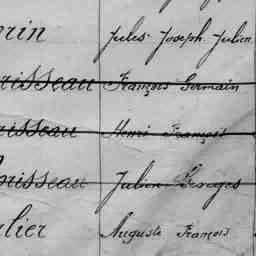 rin Jules Joseph Julien
risseau François Germain
risseau Henri François
risseau Julien Georges
lier Auguste François